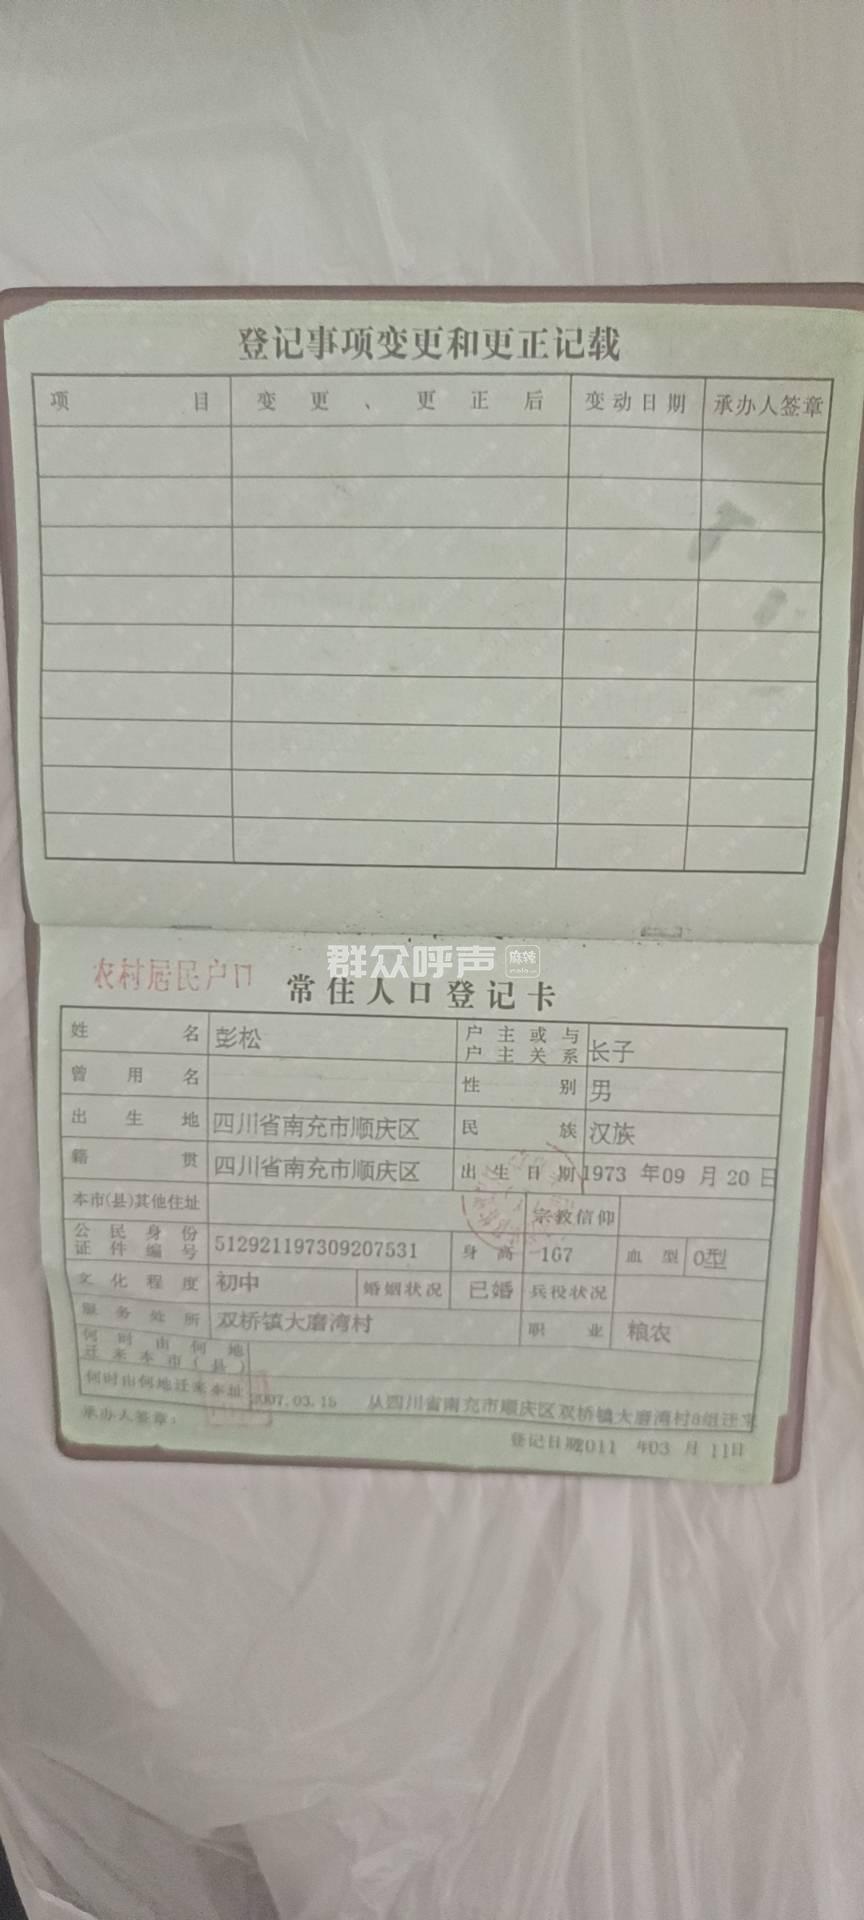 登记事项变更和更正记载
项目 变更、更正后 变动日期 承办人签章
群众呼声 麻辣
农村居民户口
常住人口登记卡
姓名 彭松 户主或与户主关系 长子
曾用名 性别 男
出生地 四川省南充市顺庆区 民族 汉族
籍贯 四川省南充市顺庆区 出生日期 1973年09月20日
本市(县)其他住址 宗教信仰
公民身份证件编号 512921197309207531 身高 167 血型 O型
文化程度 初中 婚姻状况 已婚 兵役状况
服务处所 双桥镇大磨湾村 职业 粮农
何时由何地迁来本市(县)
何时由何地迁来本址 2007.03.15 从四川省南充市顺庆区双桥镇大磨湾村8组迁来
承办人签章： 登记日期2011年03月11日